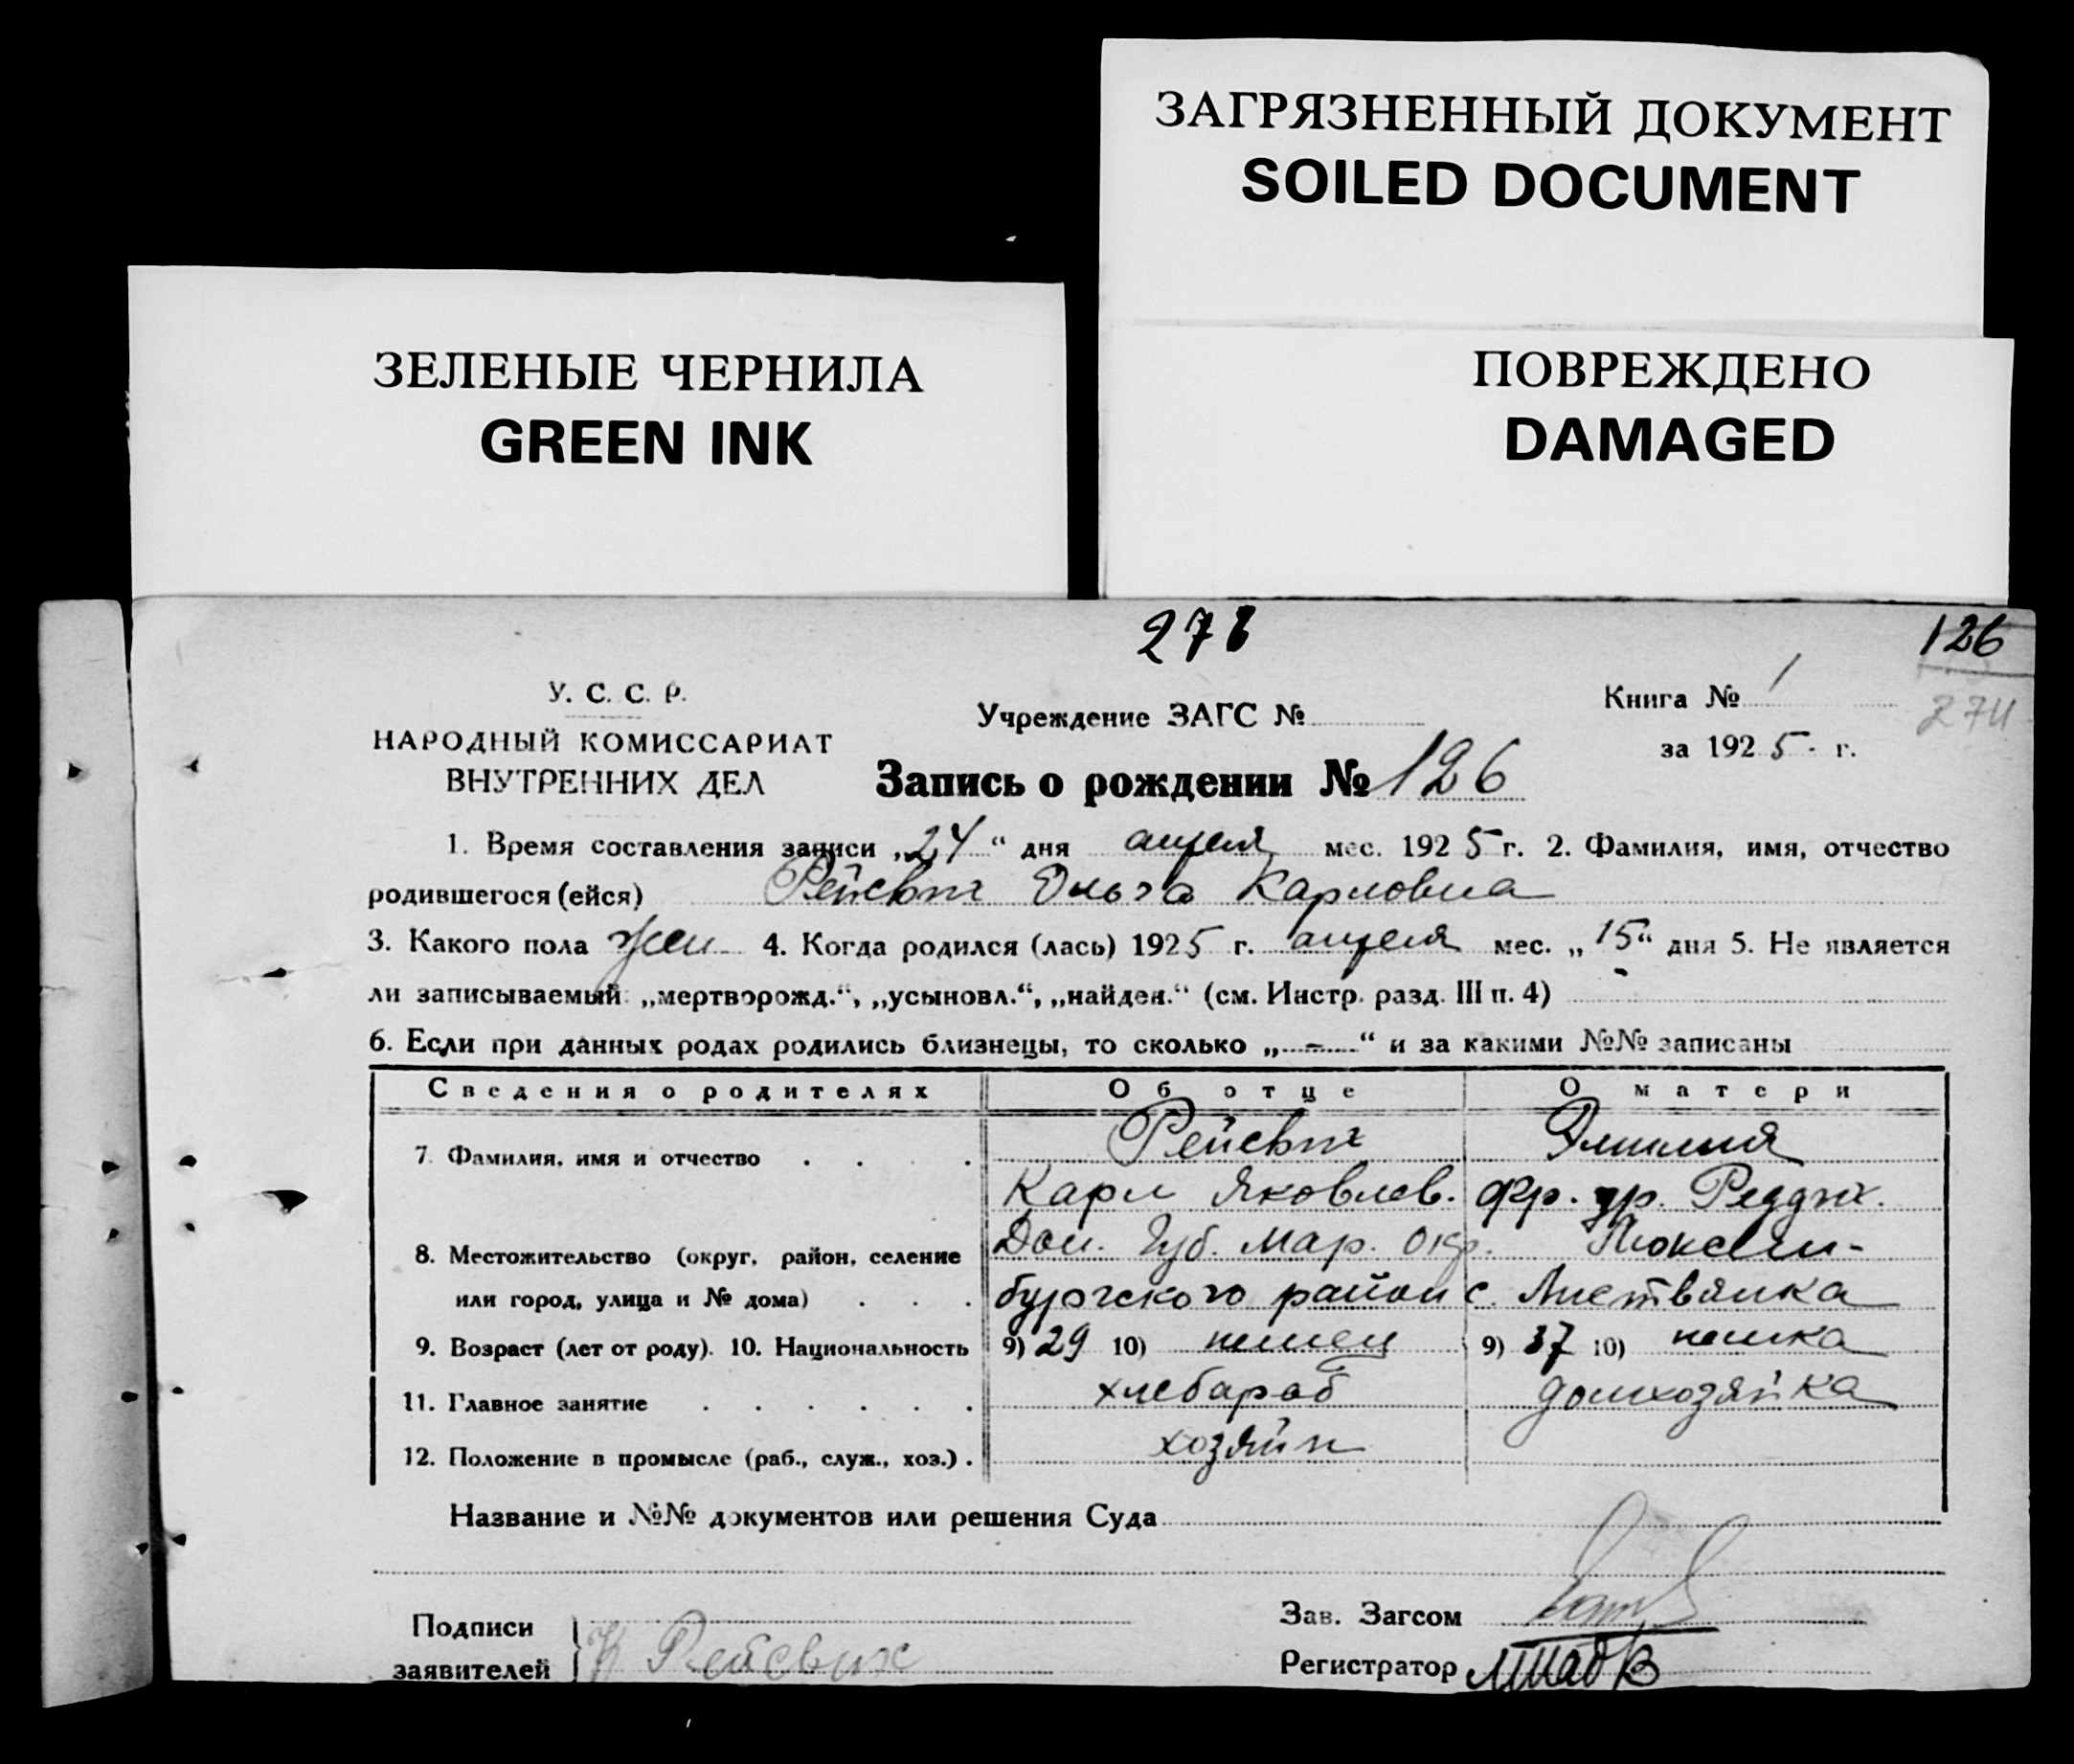 ЗАГРЯЗНЕННЫЙ ДОКУМЕНТ
SOILED DOCUMENT
ЗЕЛЕНЫЕ ЧЕРНИЛА
GREEN INK
ПОВРЕЖДЕНО
DAMAGED
278
126
274
У. С. С. Р.
НАРОДНЫЙ КОМИССАРИАТ
ВНУТРЕННИХ ДЕЛ
Учреждение ЗАГС №
Книга № 1
за 1925 г.
Запись о рождении № 126
1. Время составления записи „24“ дня апреля мес. 1925 г. 2. Фамилия, имя, отчество
родившегося (ейся) Рейсвих Ольга Карловна
3. Какого пола жен 4. Когда родился (лась) 1925 г. апреля мес. „15“ дня 5. Не является
ли записываемый: „мертворожд.“, „усыновл.“, „найден.“ (см. Инстр. разд. III п. 4) -
6. Если при данных родах родились близнецы, то сколько „-“ и за какими №№ записаны
Сведения о родителях Об отце О матери
7. Фамилия, имя и отчество Рейсвих Эмилия
Карл Яковлев. Фр. ур. Реддих.
8. Местожительство (округ, район, селение Дон. Губ. Мар. Окр. Люксем-
или город, улица и № дома) бургского район с. Листвянка
9. Возраст (лет от роду). 10. Национальность 9) 29 10) немец 9) 37 10) немка
11. Главное занятие хлебароб домхозяйка
12. Положение в промысле (раб., служ., хоз.) хозяин
Название и №№ документов или решения Суда
Подписи
заявителей К Рейсвих
Зав. Загсом
Регистратор